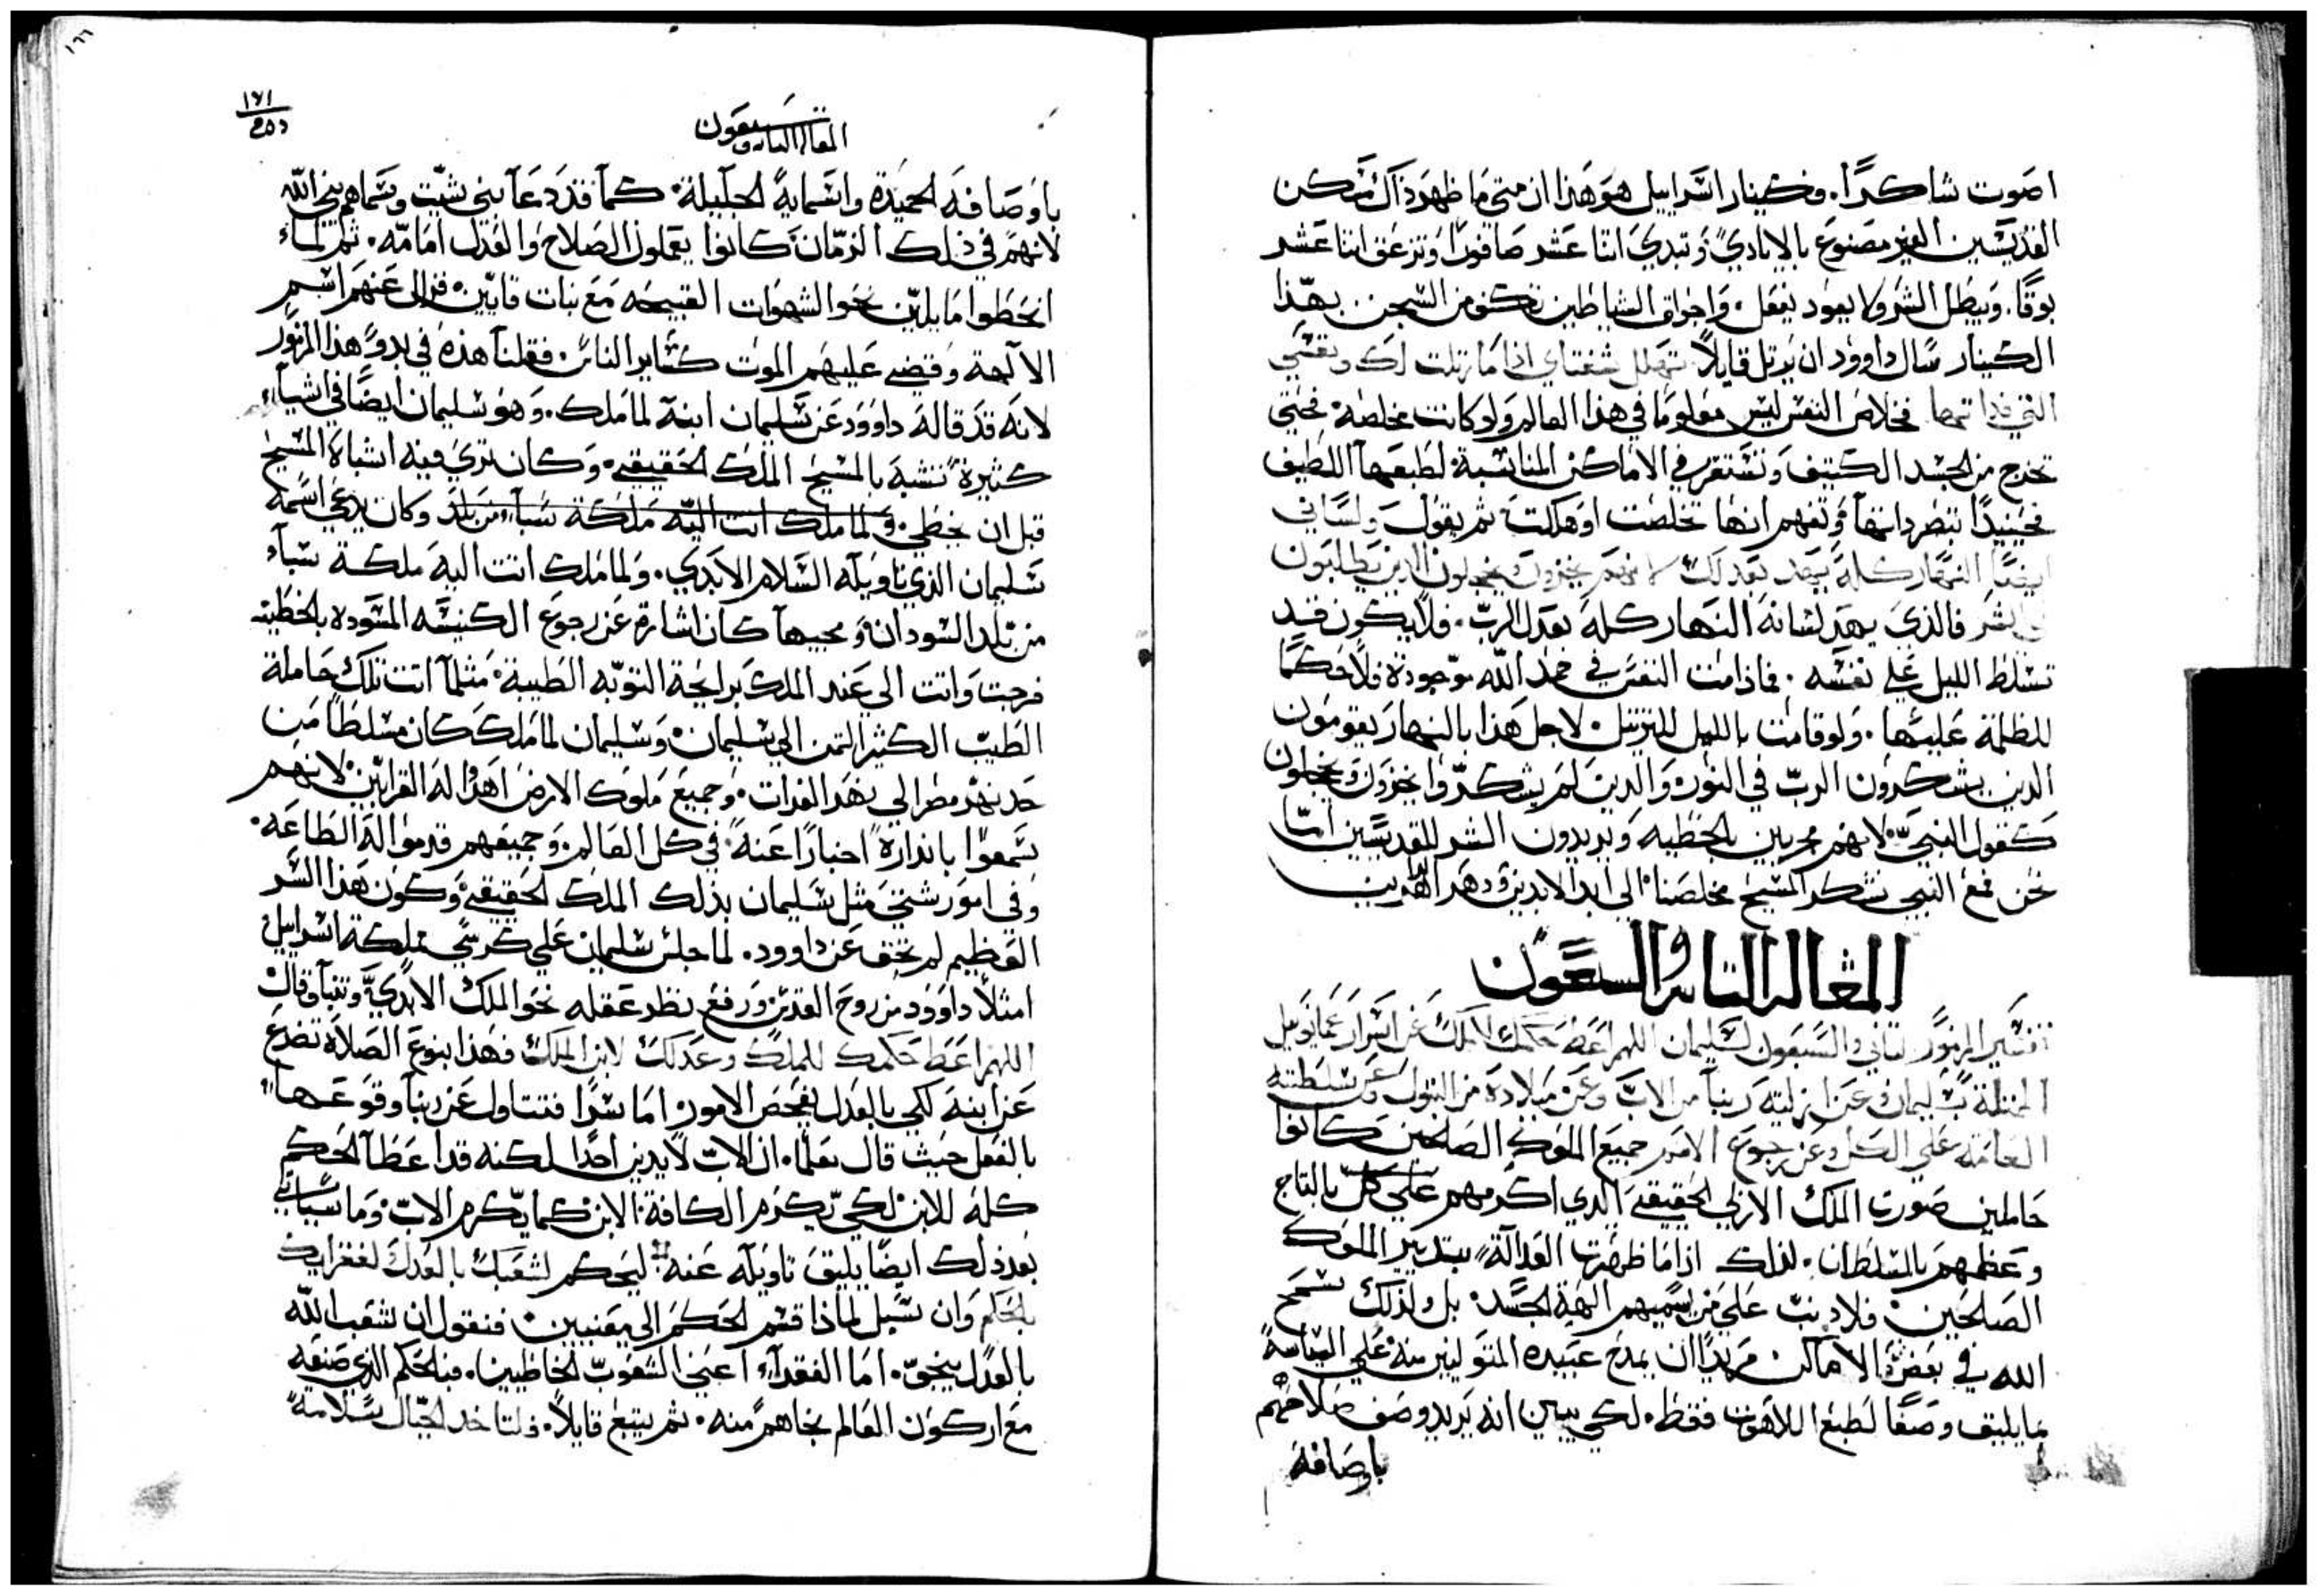 اصوت شاكرًا. فكينار اسراييل هو هذا ان متي ما ظهر ذاك متكن
القديسين الغير مصنوع بالايادي وتبدي اثنا عشر صافورًا وتزعق اثنا عشر
بوقًا. ويبطل الشر ولا يعود يفعل. واجواق الشياطين تكنو من السجن بهذا
الكينار سال داوود ان يرتل قايلًا تهلل شفتاي اذا ما رتلت لك ونفسي
التي فداتها فخلاص النفس ليس معلومًا في هذا العالم ولو كانت مخلصة. فحتي
تخرج من الجسد الكتيف وتستقر في الاماكن المناسبة لطبعها اللطيف
فحينيدًا تنظر داتها وتفهم انها تخلصت او هلكت ثم يقول ولساني
ايضًا النهار كله يهد بعدلك لانهم يخزون ويخجلون الدين يطلبون
لي الشر فالذي يهد لسانه النهار كله بعدل الرب. فلا يكون قد
تسلط الليل علي نفسه. فاذا مت النفس في حمد الله موجودة فلا حكمًا
للظلمة عليها. ولو قامت بالليل للترتيل. لاجل هذا بالنهار يقومون
الدين يشكرون الرب في النور والدين لم يشكروا يخزون ويخجلون
كقول النبي. لانهم مجربين بالخطيه ويريدون الشر للقديسين امّا
نحن فمع النبي نشكر المسيح مخلصنا الي ابد الابدين ودهر الداهرين
المقاله التانيه والسبعون
تفسير المزمور التاني والسبعون لسليمان اللهم اعط حكمك للملك عن اسرار عمانوييل
الممتلة بسليمان وعن ازليته ربنا من الاب وعن ميلاده من البتول وعن سلطته
العامه علي الكل وعن رجوع الامم جميع الملوك الصالحين كانوا
حاملين صورت الملك الازلي الحقيقي الدي اكرمهم علي كل بالتاج
وعظمهم بالسلطان. لذلك اذا ما ظهرت العدالة بتدبير الملوك
الصالحين. فلا دنب علي من يسميهم الهة الجسد. بل ولذلك سمح
الله في بعض الاماكن مريدًا ان يمدح عبيده المتوليين منه علي السياسة
بما يليق وصفًا لطبع اللاهوت فقط. لكي يبين انه يريد وصف صلاحهم
باوصافه
١٦٦
١٦١
المقاله التانيه والسبعون
باوصافه الحميدة واسمايه الجليلة. كما قد دعا بني شيت وسماهم بني الله
لانهم في ذلك الزمان كانوا يعملون الصلاح والعدل امامه. ثم لما
انحطوا مايلين نحو الشهوات القبيحه مع بنات قايين. فزال عنهم اسم
الالهة وقضي عليهم الموت كساير الناس. فقلنا هذه في بدو هذا المزمور
لانه قد قاله داوود عن سليمان ابنه لما ملك. وهو سليمان ايضًا في اشياء
كثيرة تشبه بالمسيح الملك الحقيقي. وكان تري فيه اشباه المسيح
قبل ان يخطي. ولما ملك اتت اليه ملكة سبا من بلد وكان يدعي اسمه
سليمان الذي تاويله السلام الابدي. ولما ملك اتت اليه ملكة سباء
من بلد السودان ومجيها كان اشارة عن رجوع الكنيسه المسوده بالخطيه
فرجت واتت الي عند الملك برايحة التوبه الطيبة. مثلما اتت تلك حاملة
الطيب الكثير التمن الي سليمان. وسليمان لما ملك كان مسلطًا من
حد نهر مصر الي نهر الفرات. وجميع ملوك الارض اهدوا له القرابين. لانهم
سمعوا بانداره اخبارًا عنه في كل العالم. وجميعهم قدموا له الطاعه.
وفي امور شتي مثل سليمان بذلك الملك الحقيقي وكون هذا السر
العظيم لم يخف عن داوود. لما جلس سليمان علي كرسي مملكة اسراييل
امتلا داوود من روح القدس ورفع نظر عقله نحو الملك الابدي وتنبا وقال
اللهم اعط حكمك للملك وعدلك لابن الملك فهذا بنوع الصلاة تضرع
عن ابنه لكي بالعدل يفحص الامور. اما سرًا فتتاول عن ربنا وقوعها
بالفعل حيث قال معلما. ان الاب لا يدين احدًا لكنه قد اعطا الحكم
كله للابن لكي تكرم الكافة الابن كما يكرم الاب. وما سياتي
بعد ذلك ايضًا يليق تاويله عنه ليحكم لشعبك بالعدل لفقرايك
بالحكم وان سيل لماذا قسم الحكم الي معنيين. فنقول ان شعب الله
بالعدل ينحق. اما الفقراء اعني الشعوب الخاطيين. فبالحكم الذي صنعه
مع اركون العالم نجاهم منه. ثم يتبع قايلًا. ولتاخد الجبال سلامة